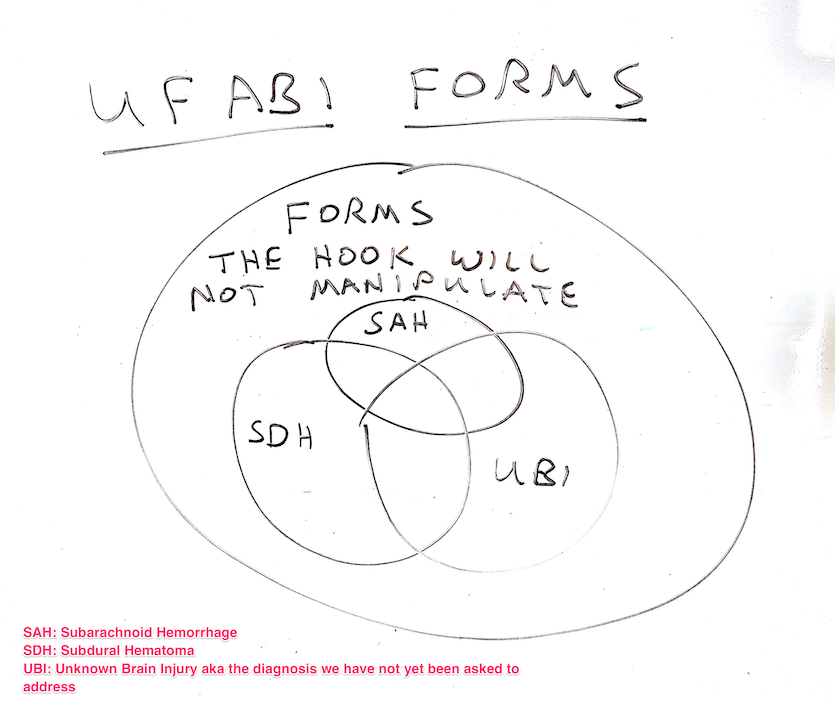 UFABI FORMS
FORMS
THE HOOK WILL
NOT MANIPULATE
SAH
SDH
UBI
SAH: Subarachnoid Hemorrhage
SDH: Subdural Hematoma
UBI: Unknown Brain Injury aka the diagnosis we have not yet been asked to
address